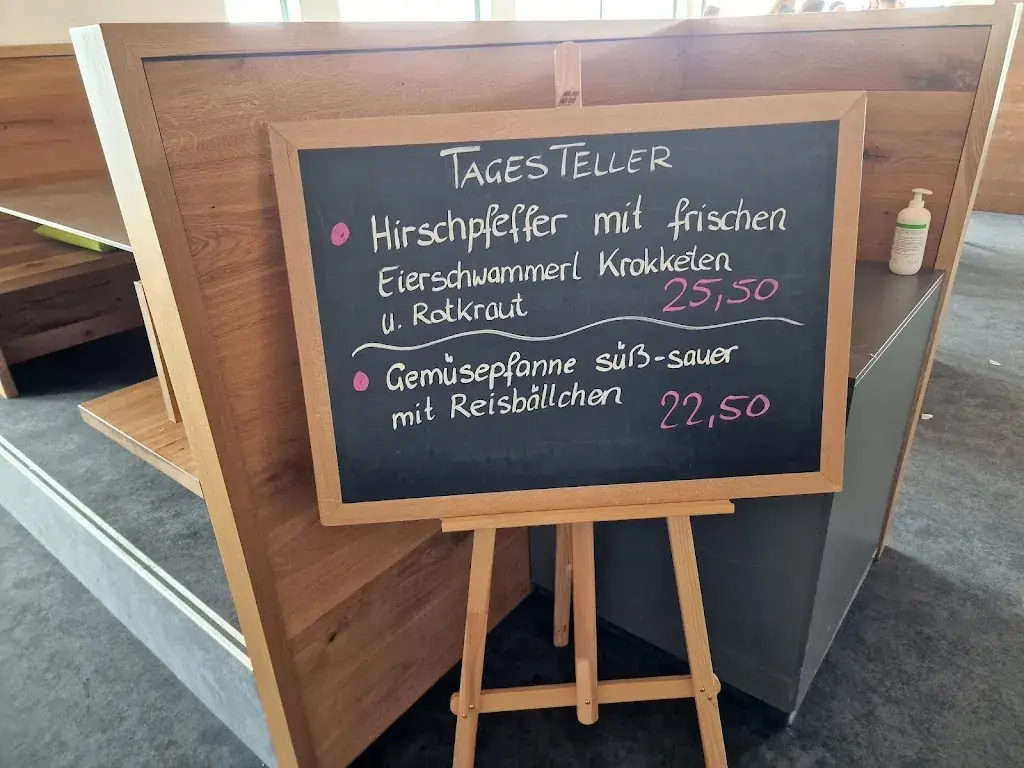 TAGESTELLER
Hirschpfeffer mit frischen
Eierschwammerl Krokketen
u. Rotkraut 25,50
Gemüsepfanne süß-sauer
mit Reisbällchen 22,50